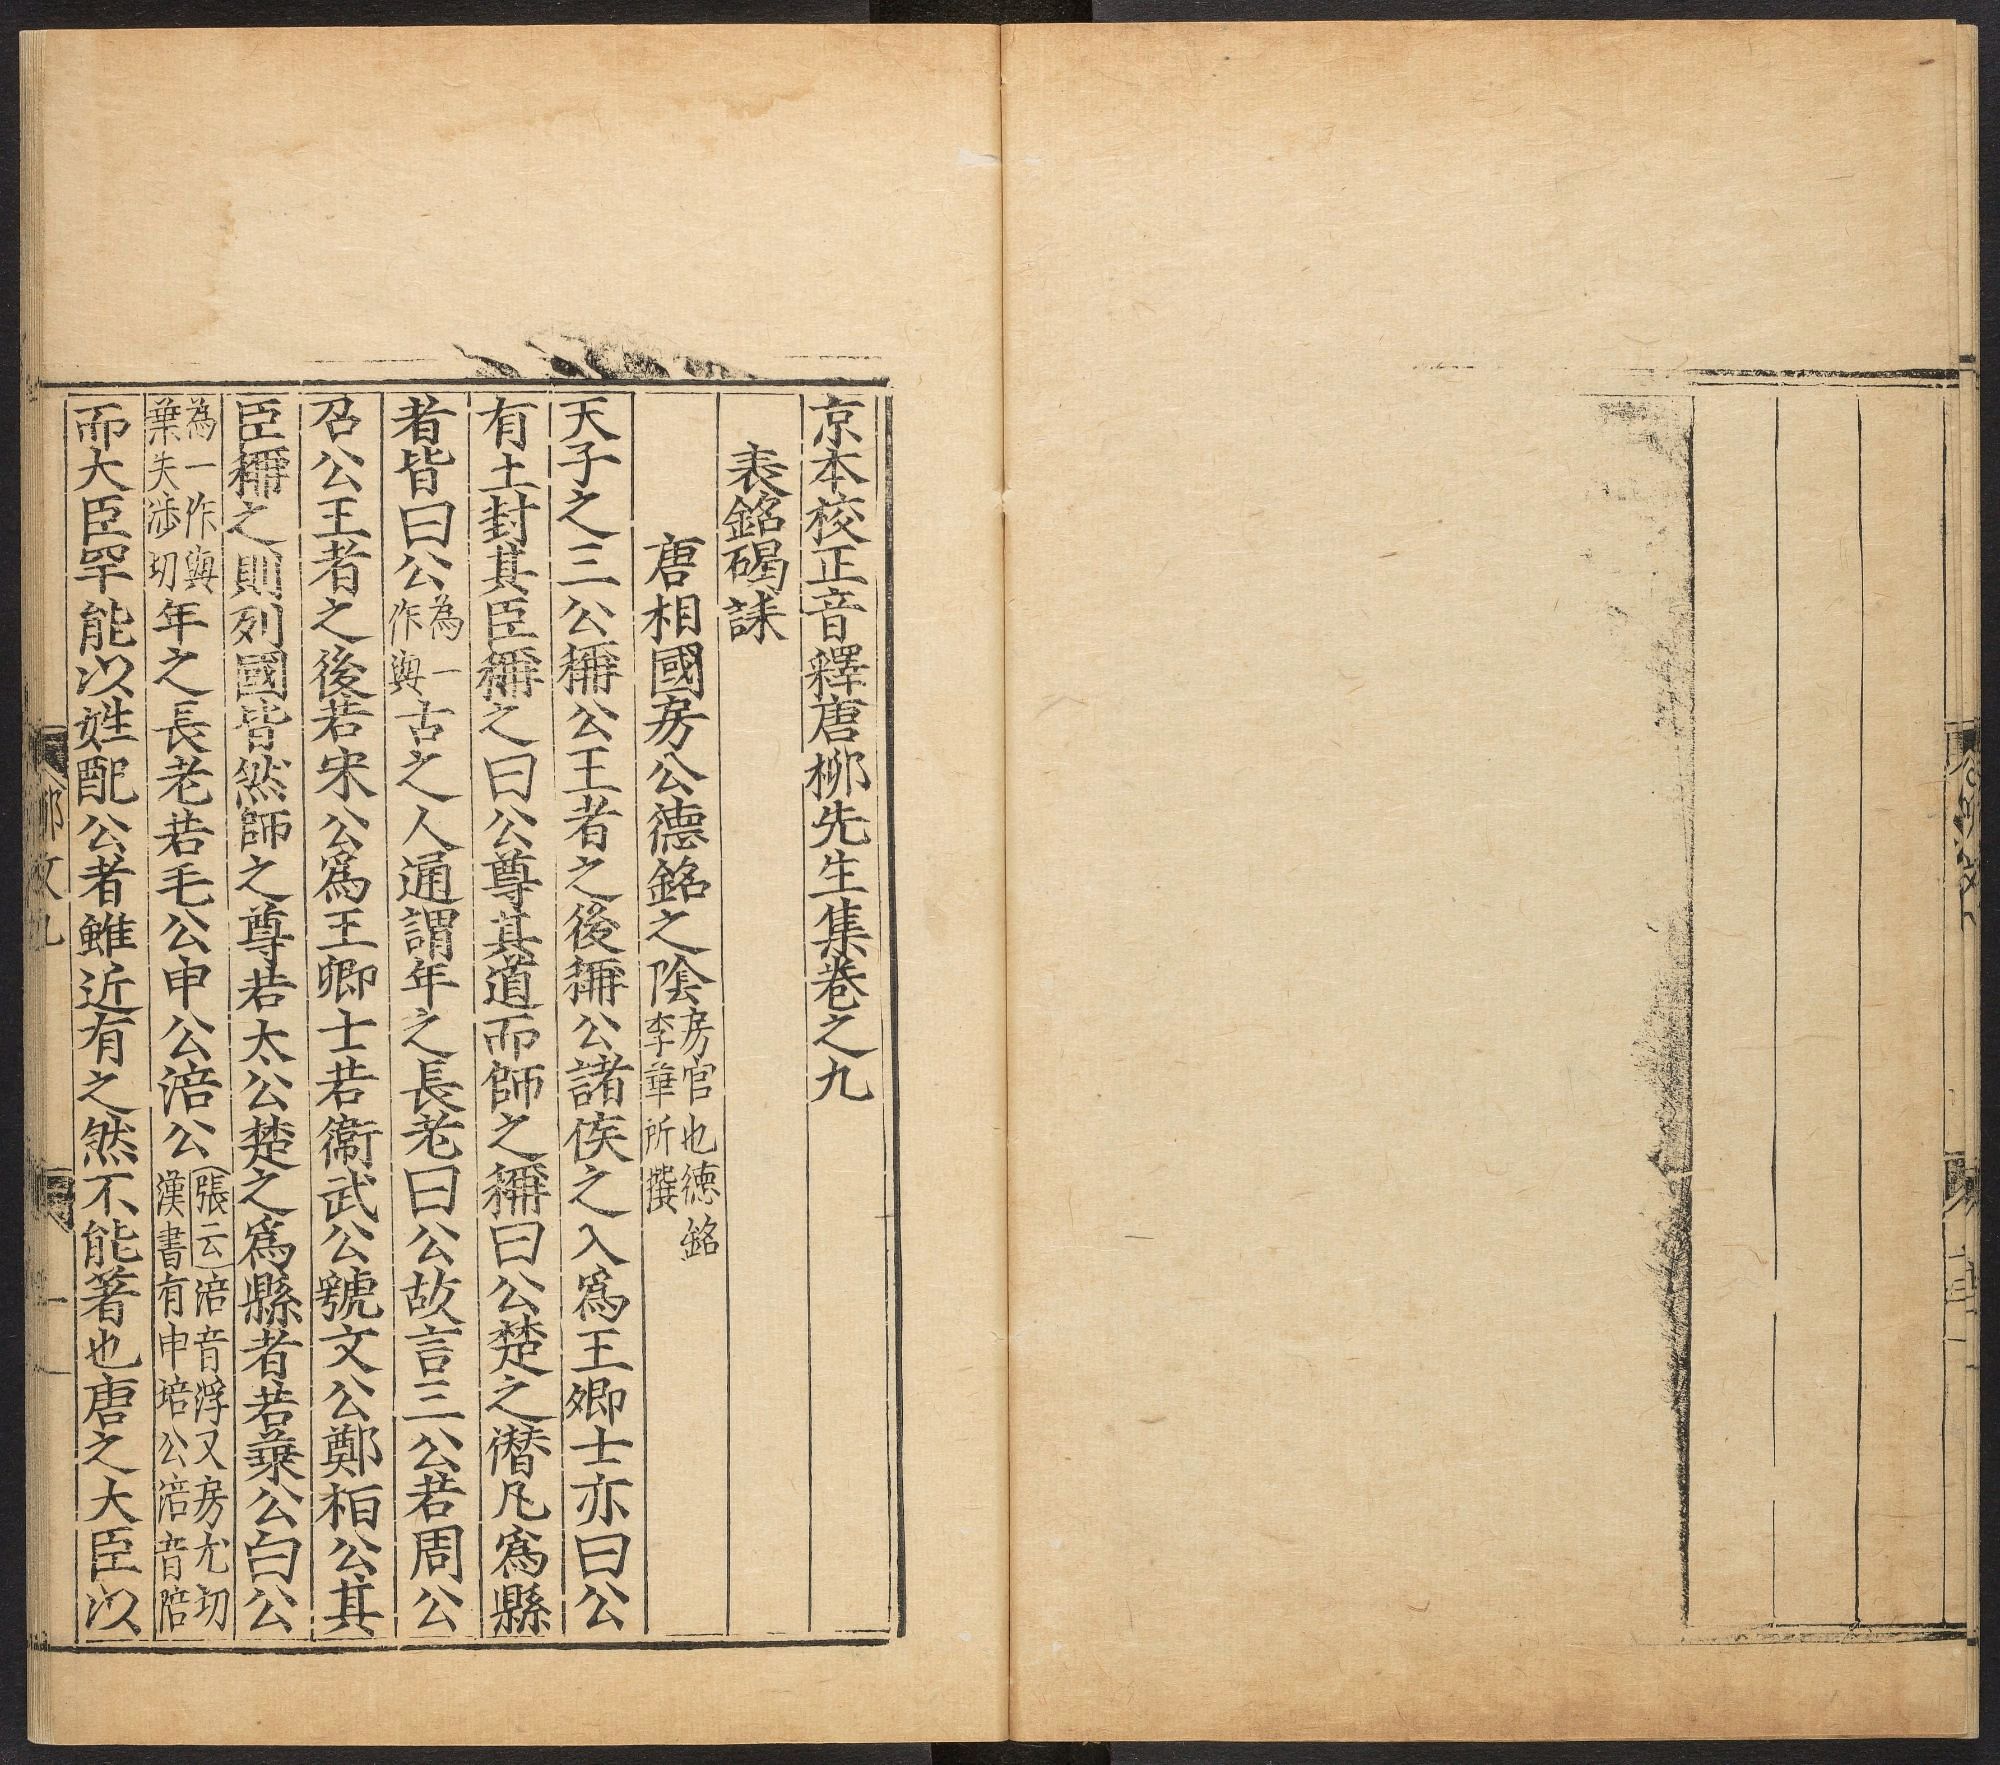 京本校正音釋唐柳先生集卷之九
表銘碣誄
唐相國房公德銘之陰房官也德銘李華所撰
天子之三公稱公王者之後稱公諸侯之入爲王卿士亦曰公
有土封其臣稱之曰公尊其道而師之稱曰公楚之僭凡爲縣
者皆曰公為一作與古之人通謂年之長老曰公故言三公若周公
召公王者之後若宋公爲王卿士若衞武公虢文公鄭桓公其
臣稱之則列國皆然師之尊若太公楚之爲縣者若葉公白公
為一作與葉失涉切年之長老若毛公申公涪公張云涪音浮又房尤切漢書有申培公涪音陪
而大臣罕能以姓配公者雖近有之然不能著也唐之大臣以
柳文九
一